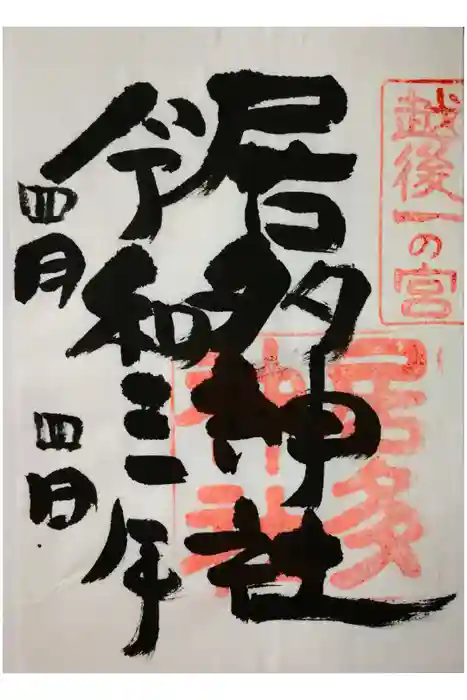 越後一の宮
居多神社
居多神社
令和三年
四月
四日